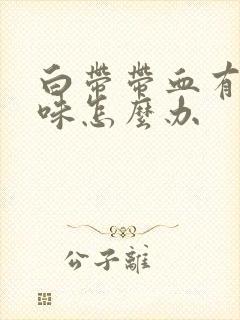 白带带血有
味怎麽办
公子離